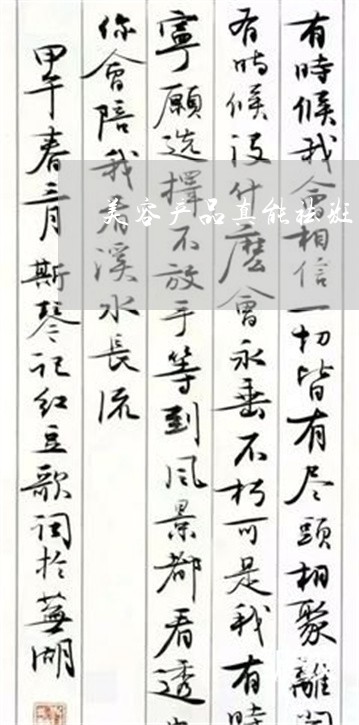 有時候我会相信一切皆有尽頭相聚離開
有時候没什麽會永垂不朽可是我有時
寧願选擇不放手等到风景都看透
你會陪我看溪水長流
甲午春三月斯琴记红豆歌词於蕪湖
美容产品真能祛斑